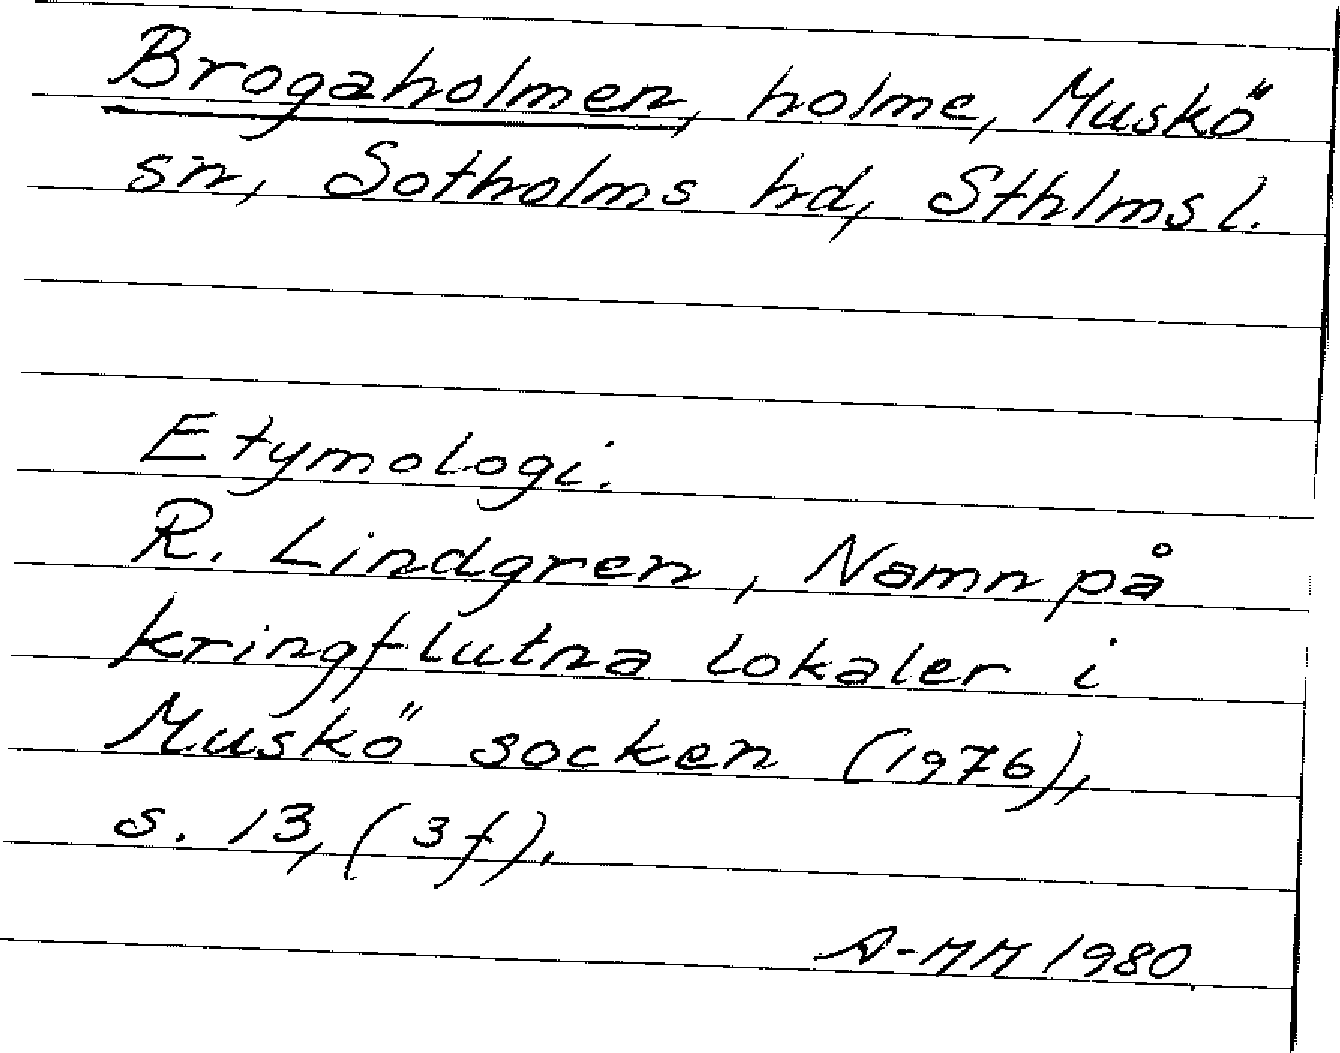 Brogaholmen, holme, Muskö
sn, Sotholms hd, Sthlms l.
Etymologi.
R. Lindgren, Namn på
kringflutna lokaler i
Muskö socken (1976),
s. 13, (3f).
A-MM 1980